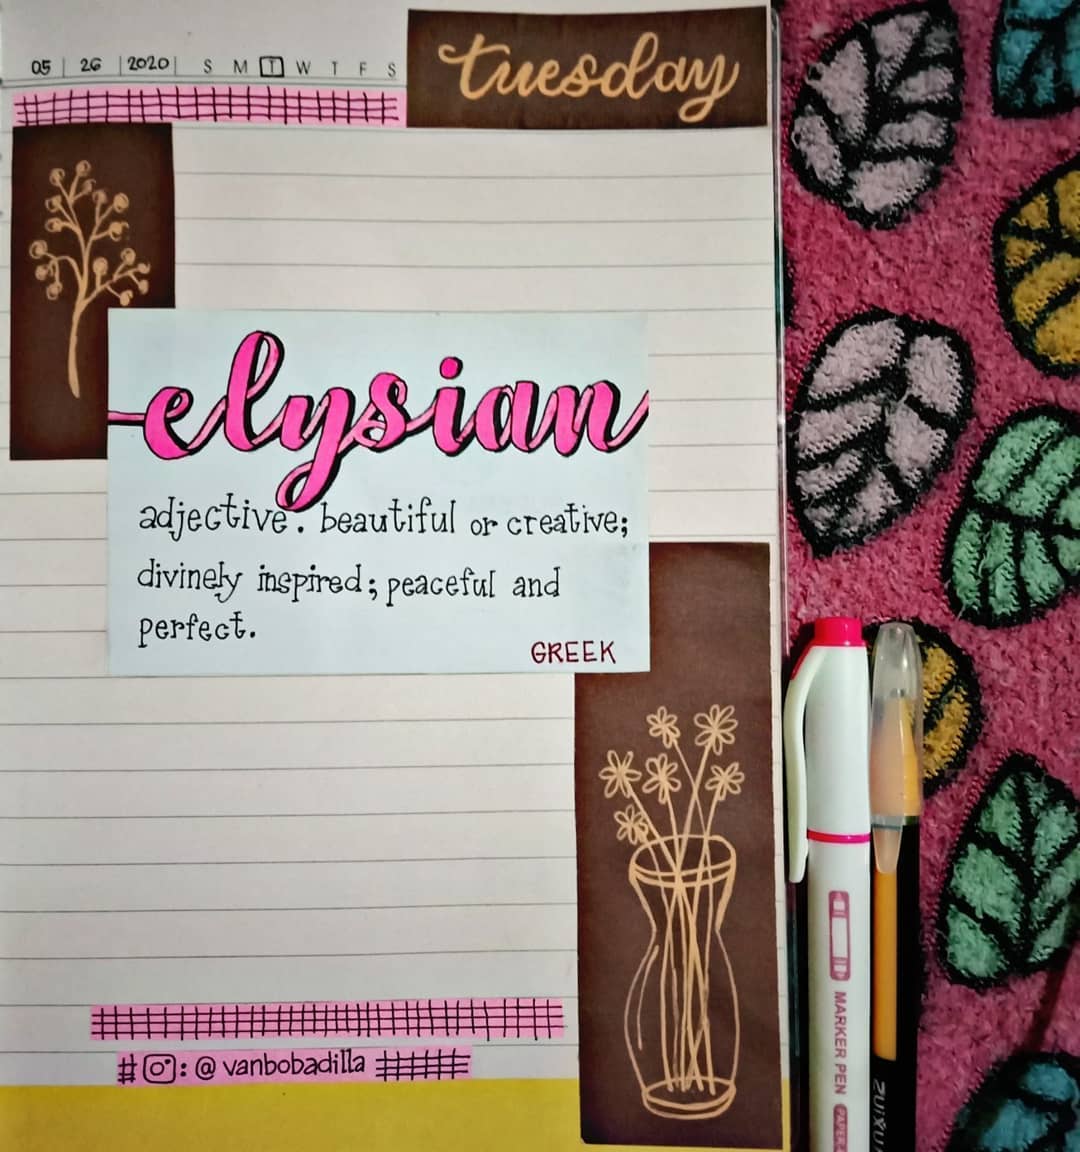 05 | 26 | 2020 | S M T W T F S
tuesday
elysian
adjective. beautiful or creative;
divinely inspired; peaceful and
perfect.
GREEK
: @vanbobadilla
MARKER PEN